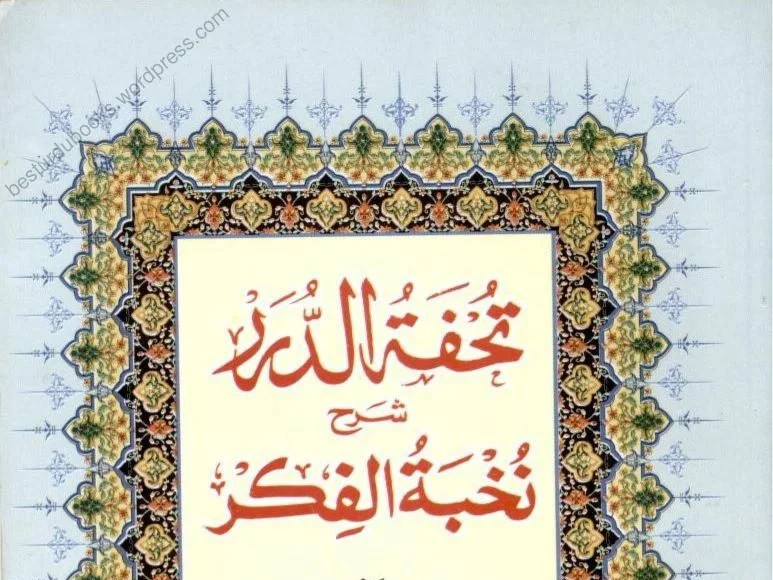 besturdubooks.wordpress.com
تُحْفَةُ الدُّرَرْ
شَرح
نُخْبَةُ الفِكَرْ